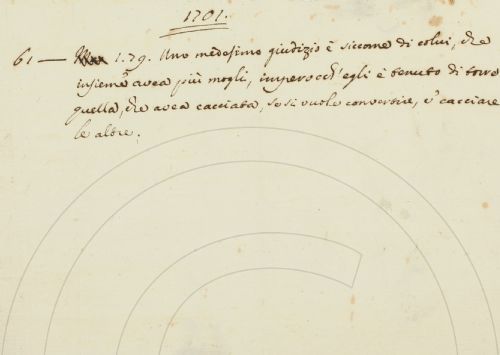 1701.
61 — 1.79. Uno medesimo giudizio è siccome di colui, che
insieme avea più mogli, imperocch'egli è tenuto di torre
quella, che avea cacciata, se si vuole convertire, e cacciare
le altre.